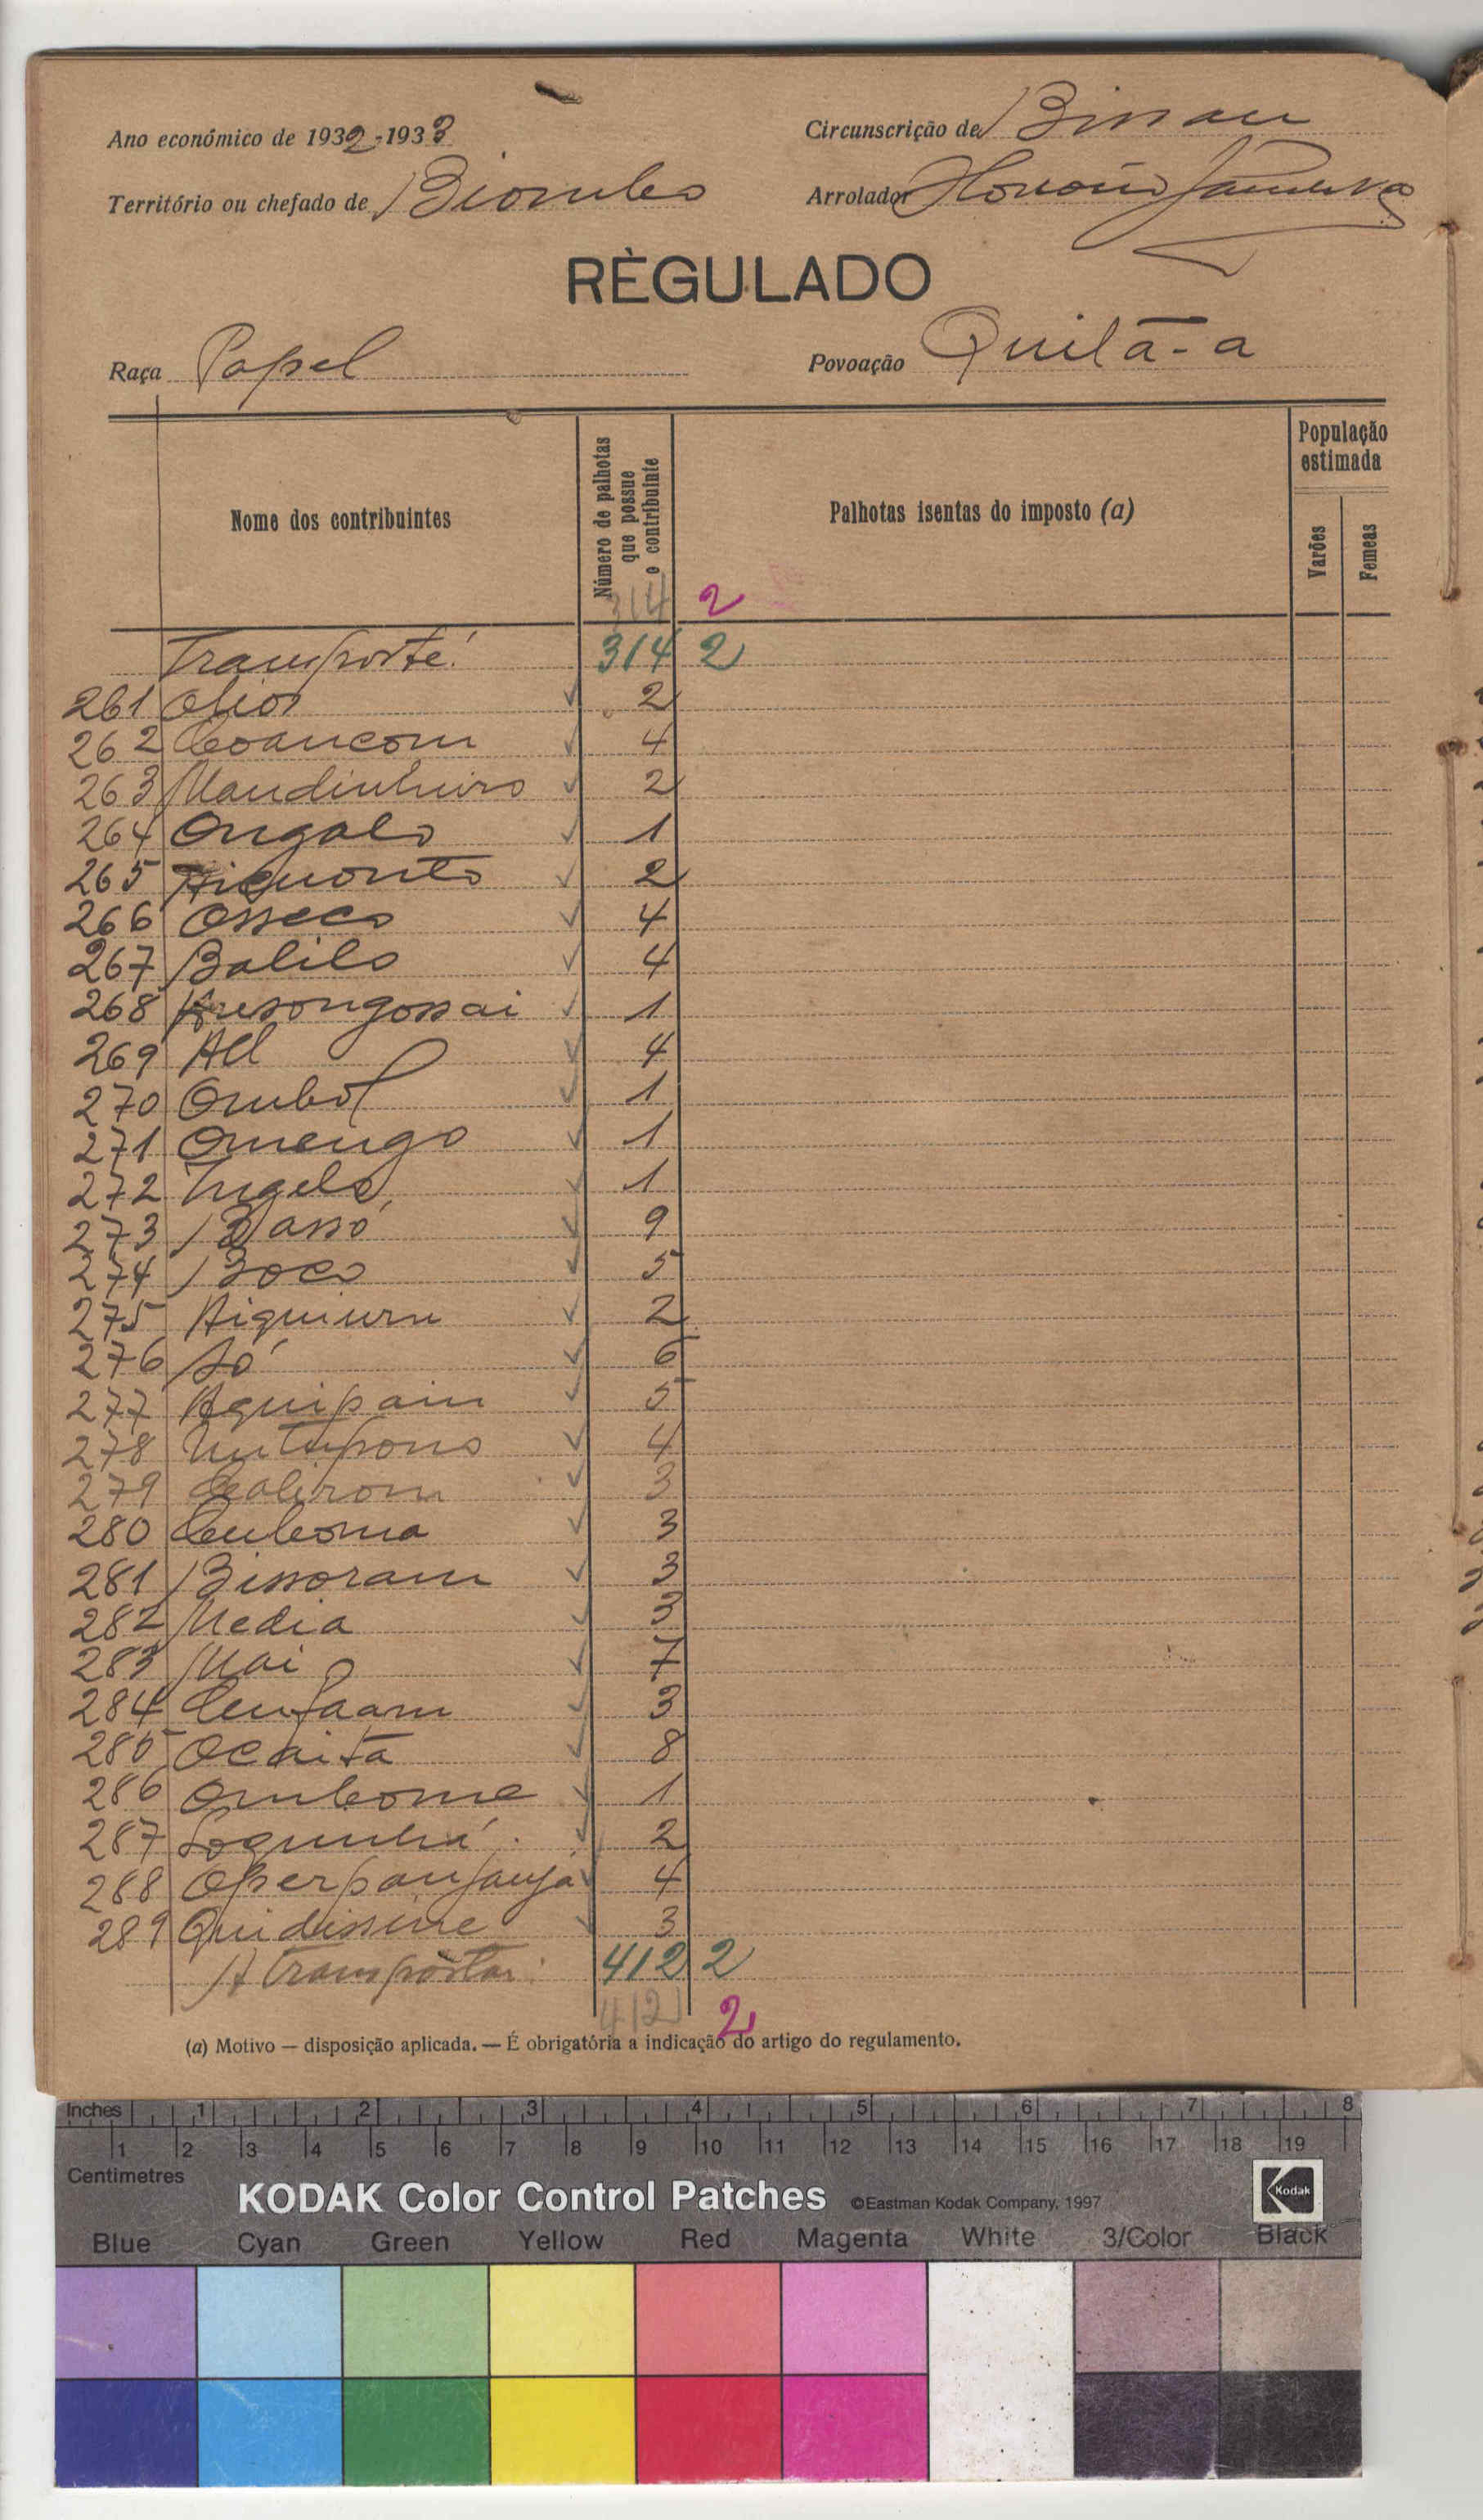 Ano económico de 1932-1933
Circunscrição de Bissau
Território ou chefado de Biombo
Arrolador Honorio
RÈGULADO
Raça Papel
Povoação Quitã-a
Nome dos contribuintes
Número de palhotas que possue o contribuinte
Palhotas isentas do imposto (a)
População estimada
Varões
Femeas
314 2
Transporte: 314 2
261 2
262 Coancom 4
263 Mandinheiro 2
264 Ongalo 1
265 2
266 Osseco 4
267 Balilo 4
268 1
269 All 4
270 Ombol 1
271 Omengo 1
272 Ingelo 1
273 Bassó 9
274 Boco 5
275 2
276 Só 6
277 Aquipain 5
278 4
279 3
280 3
281 Bissoram 3
282 Media 3
283 Mai 7
284 3
285 Ocaita 8
286 Ombome 1
287 2
288 4
289 Quidissine 3
A transportar: 412 2
412 2
(a) Motivo — disposição aplicada. — É obrigatória a indicação do artigo do regulamento.
Inches 1 2 3 4 5 6 7 8
1 2 3 4 5 6 7 8 9 10 11 12 13 14 15 16 17 18 19
Centimetres
KODAK Color Control Patches ©Eastman Kodak Company, 1997 Kodak
Blue Cyan Green Yellow Red Magenta White 3/Color Black